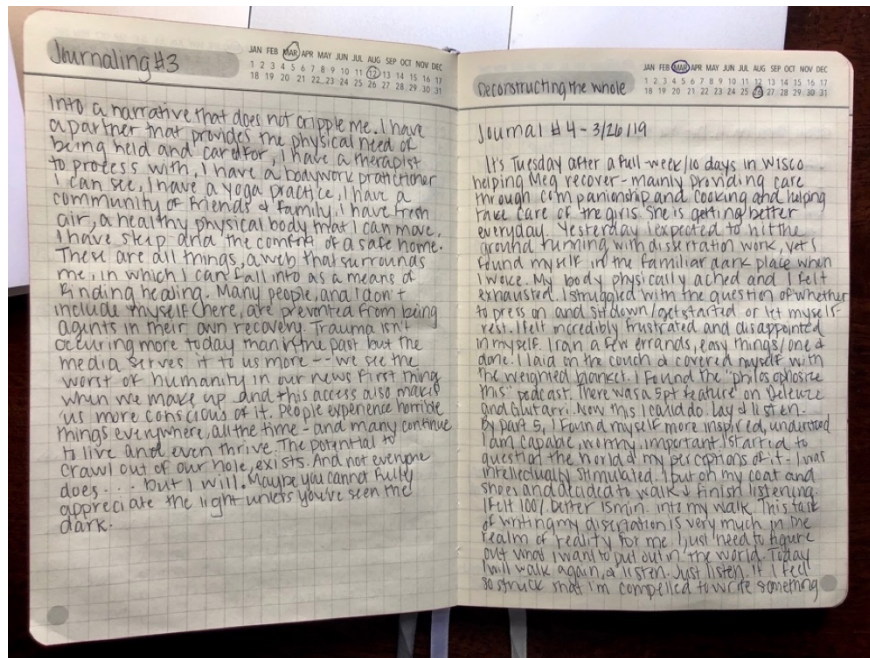 Journaling #3
JAN FEB MAR APR MAY JUN JUL AUG SEP OCT NOV DEC
1 2 3 4 5 6 7 8 9 10 11 12 13 14 15 16 17
18 19 20 21 22 23 24 25 26 27 28 29 30 31
Into a narrative that does not cripple me. I have
a partner that provides me physical need of
being held and cared for, I have a therapist
to process with, I have a bodywork practitioner
I can see, I have a yoga practice, I have a
community of friends & family, I have fresh
air, a healthy physical body that I can move,
I have sleep and the comfort of a safe home.
These are all things, a web that surrounds
me, in which I can fall into as a means of
finding healing. Many people, and I don't
include myself here, are prevented from being
agents in their own recovery. Trauma isn't
occuring more today than in the past but the
media serves it to us more -- we see the
worst of humanity in our news first thing
when we wake up and this access also makes
us more conscious of it. People experience horrible
things everywhere, all the time - and many continue
to live and even thrive. The potential to
crawl out of our hole, exists. And not everyone
does . . . but I will. Maybe you cannot fully
appreciate the light unless you've seen the
dark.
Deconstructing the whole
JAN FEB MAR APR MAY JUN JUL AUG SEP OCT NOV DEC
1 2 3 4 5 6 7 8 9 10 11 12 13 14 15 16 17
18 19 20 21 22 23 24 25 27 28 29 30 31
Journal #4 - 3/26/19
It's Tuesday after a full-week/10 days in Wisco
helping Meg recover - mainly providing care
through companionship and cooking and helping
take care of the girls. She is getting better
everyday. Yesterday I expected to hit the
ground running with dissertation work, yet I
found myself in the familiar dark place when
I woke. My body physically ached and I felt
exhausted. I struggled with the question of whether
to press on and sit down/get started or let myself
rest. I felt incredibly frustrated and disappointed
in myself. I ran a few errands, easy things/one &
done. I laid on the couch & covered myself with
the weighted blanket. I found the "philosophize
this" podcast. There was a 5pt feature on Deleuze
and Glutarri. Now this I could do. Lay & listen.
By part 5, I found myself more inspired,
I am capable, worthy, important. I started to
question the world & my perceptions of it - I was
intellectually stimulated. I put on my coat and
shoes and decided to walk & finish listening.
I felt 100% better 15min. into my walk. This task
of writing my dissertation is very much in the
realm of reality for me. I just need to figure
out what I want to put out in the world. Today
I will walk again, & listen. Just listen. If I feel
so struck that I'm compelled to write something